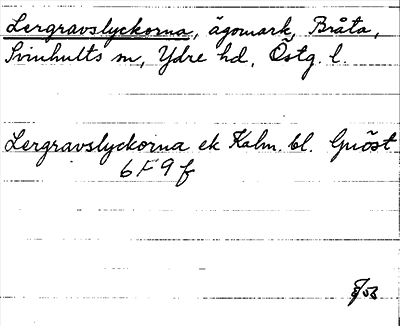 Lergravslyckorna, ägomark, Bråta,
Svinhults sn, Ydre hd, Östg. l.
Lergravslyckorna ek Kalm. bl. Gnöst
6F9f